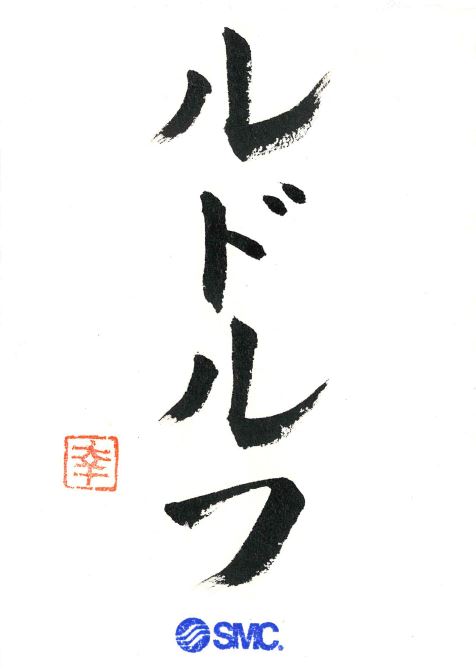 ルドルフ
幸
SMC®